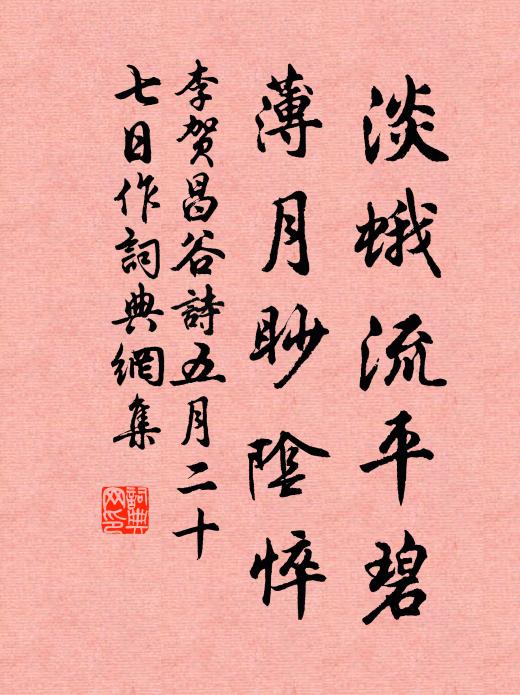 淡蛾流平碧
薄月眇陰悴
李賀昌谷詩五月二十
七日作詞典網集
詞典
网印